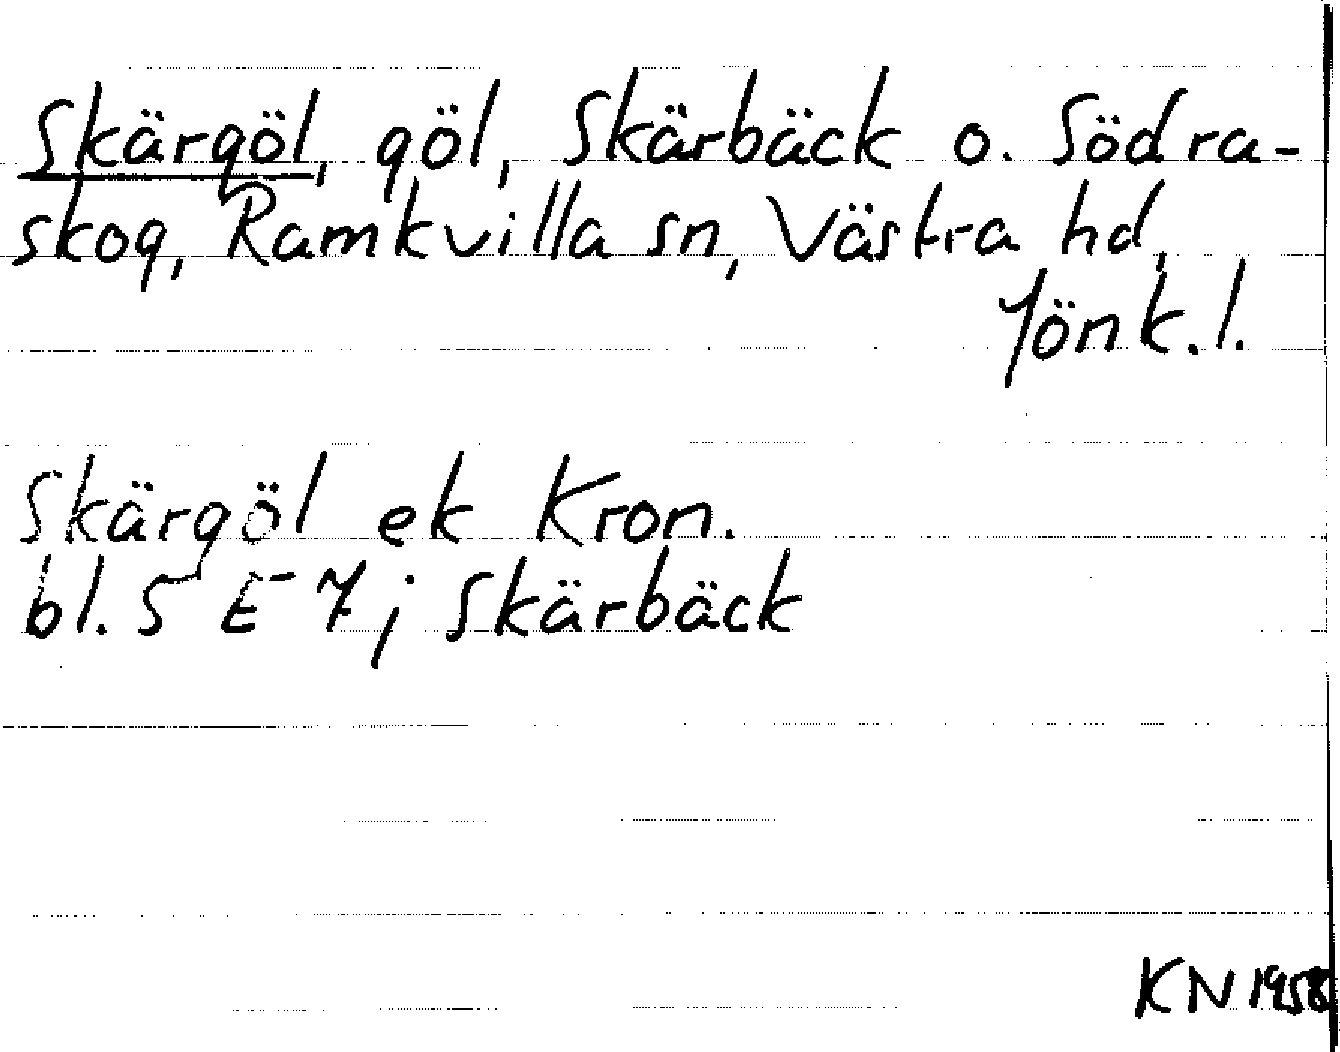 Skärgöl, göl, Skärbäck o. Södra-
skog, Ramkvilla sn, Västra hd,
Jönk.l.
Skärgöl ek Kron.
bl. 5 E 7; Skärbäck
KN 1958